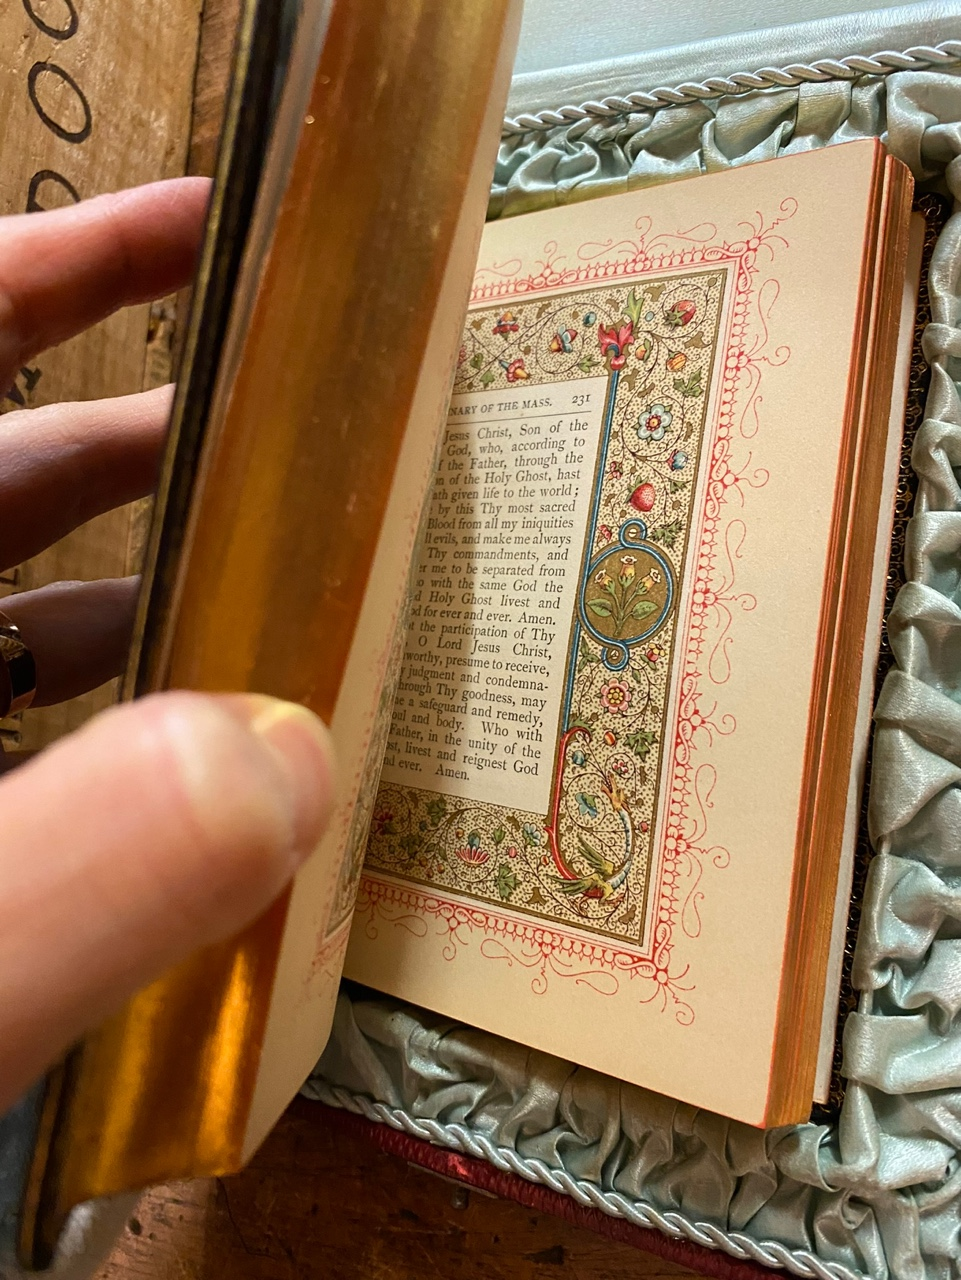 OF THE MASS. 231
Jesus Christ, Son of the
God, who, according to
the Father, through the
of the Holy Ghost, hast
given life to the world;
by this Thy most sacred
Blood from all my iniquities
evils, and make me always
Thy commandments, and
me to be separated from
with the same God the
Holy Ghost livest and
for ever and ever. Amen.
the participation of Thy
O Lord Jesus Christ,
presume to receive,
judgment and condemna-
through Thy goodness, may
a safeguard and remedy,
and body. Who with
Father, in the unity of the
livest and reignest God
ever. Amen.